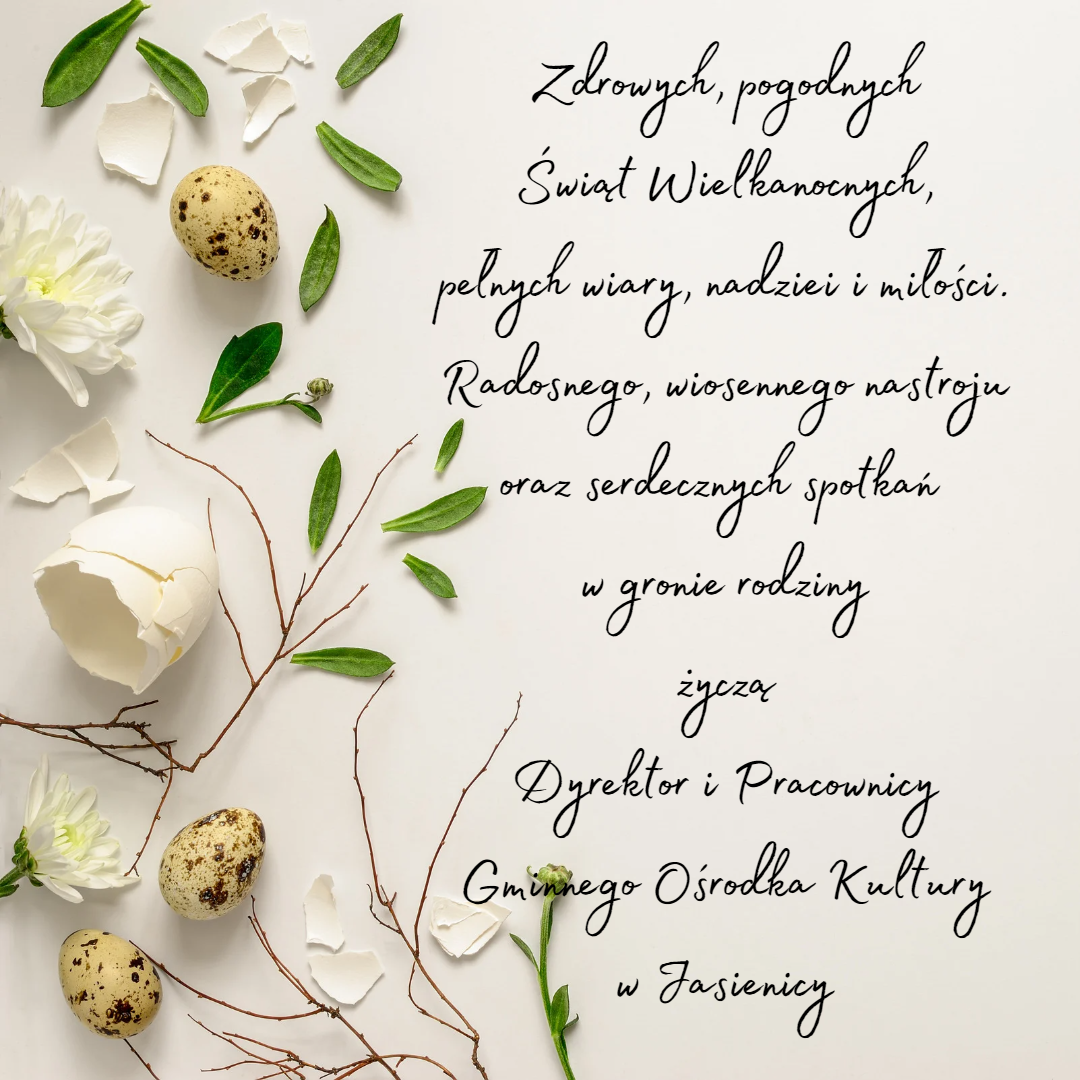 Zdrowych, pogodnych
Świąt Wielkanocnych,
pełnych wiary, nadziei i miłości.
Radosnego, wiosennego nastroju
oraz serdecznych spotkań
w gronie rodziny
życzą
Dyrektor i Pracownicy
Gminnego Ośrodka Kultury
w Jasienicy